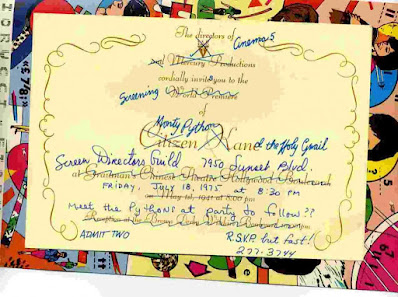 The directors of
Cinema 5
Mercury Productions
cordially invite you to the
Screening World Premiere
of
Monty Python
Citizen Kane
d the Holy Grail
Screen Directors Guild 7950 Sunset Blvd.
at Grauman's Chinese Theatre Hollywood Boulevard
FRIDAY, JULY 18, 1975 at 8:30 PM
Meet the Pythons at party to follow??
ADMIT TWO
R.S.V.P. but fast!
277-3744